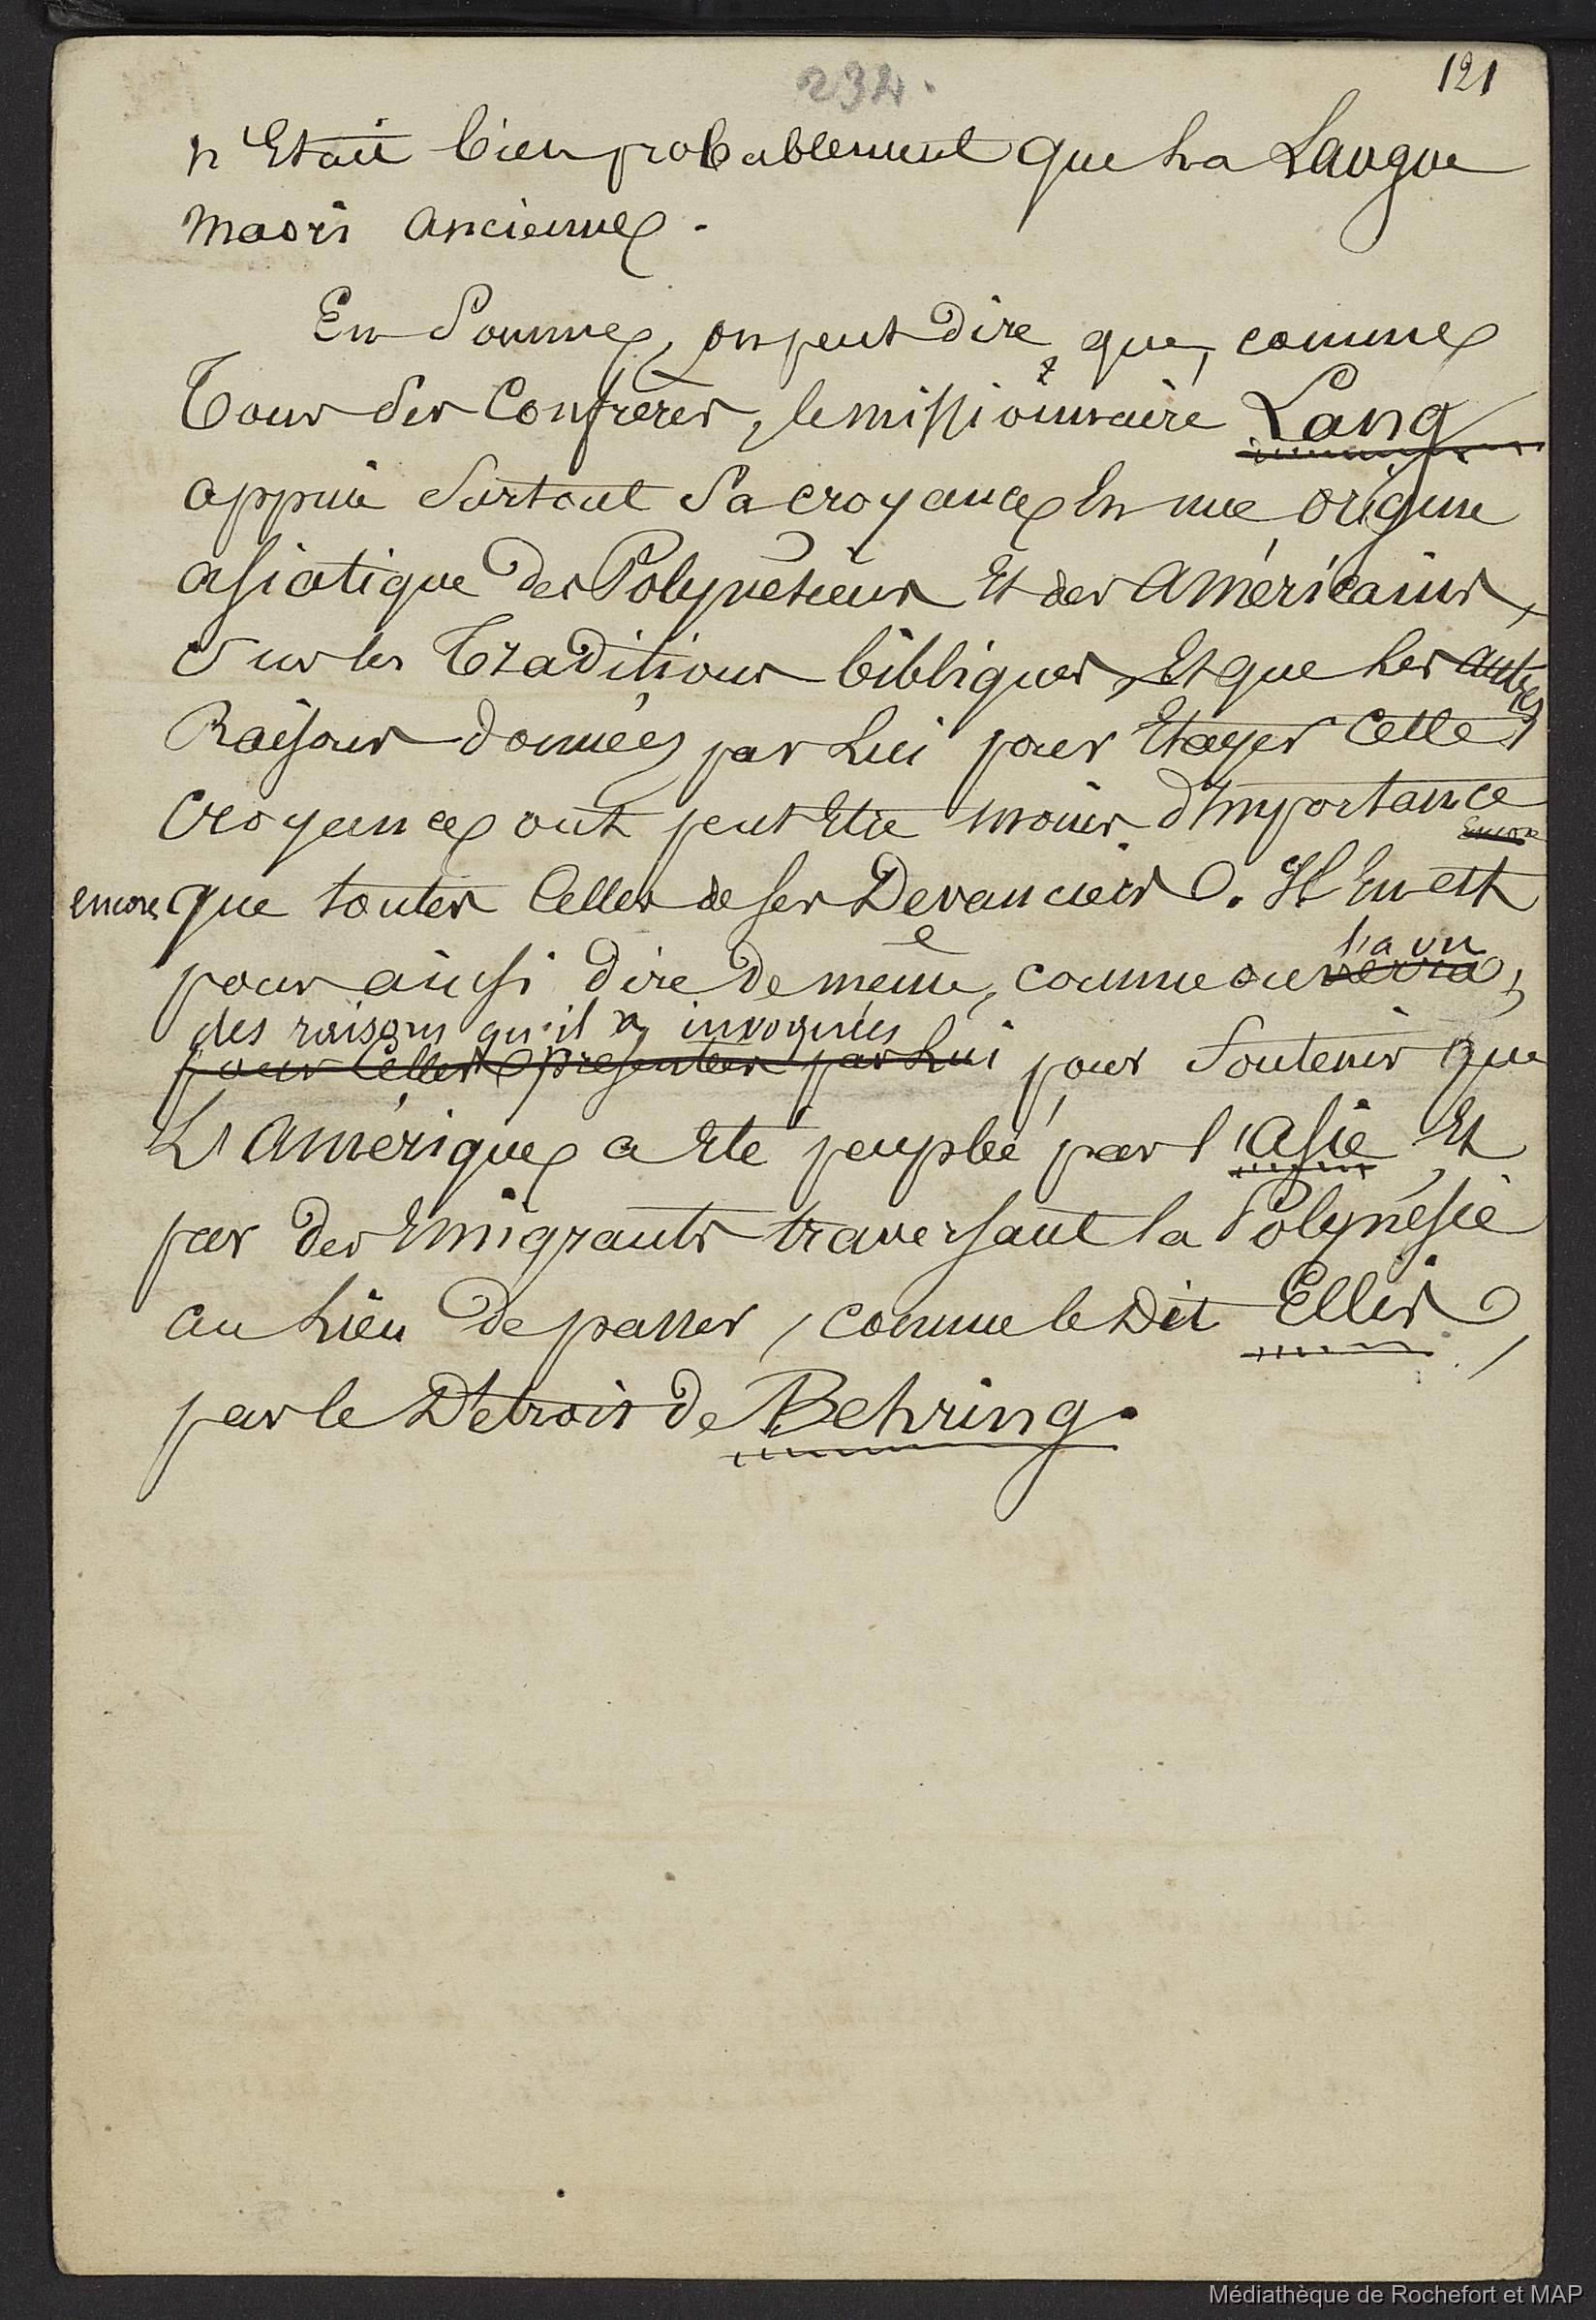 234.
121
n'Etait bien probablement que La Langue
Maori Ancienne.
En Somme, on peut Dire que, comme
Tous Ses Confrères, le missionnaire Lang
appuie Surtout Sa croyance En une origine
asiatique des Polynésiens Et des Américains,
Sur les Traditions bibliques, Et que Les autres
Raisons données par Lui pour Etayer Cette
Croyance ont peut Etre moins d'Importance
encore
encore que toutes Celles de ses Devanciers. Il En est
l'a vu
pour ainsi dire de même, comme on verra,
des raisons qu'il a invoquées
pour Celles présentées par Lui pour Soutenir que
L'Amérique a Eté peuplée par l'Asie Et
par des Emigrants traversant la Polynésie
au Lieu de passer, comme le Dit Ellis,
par le Détroit de Behring.
Médiathèque de Rochefort et MAP